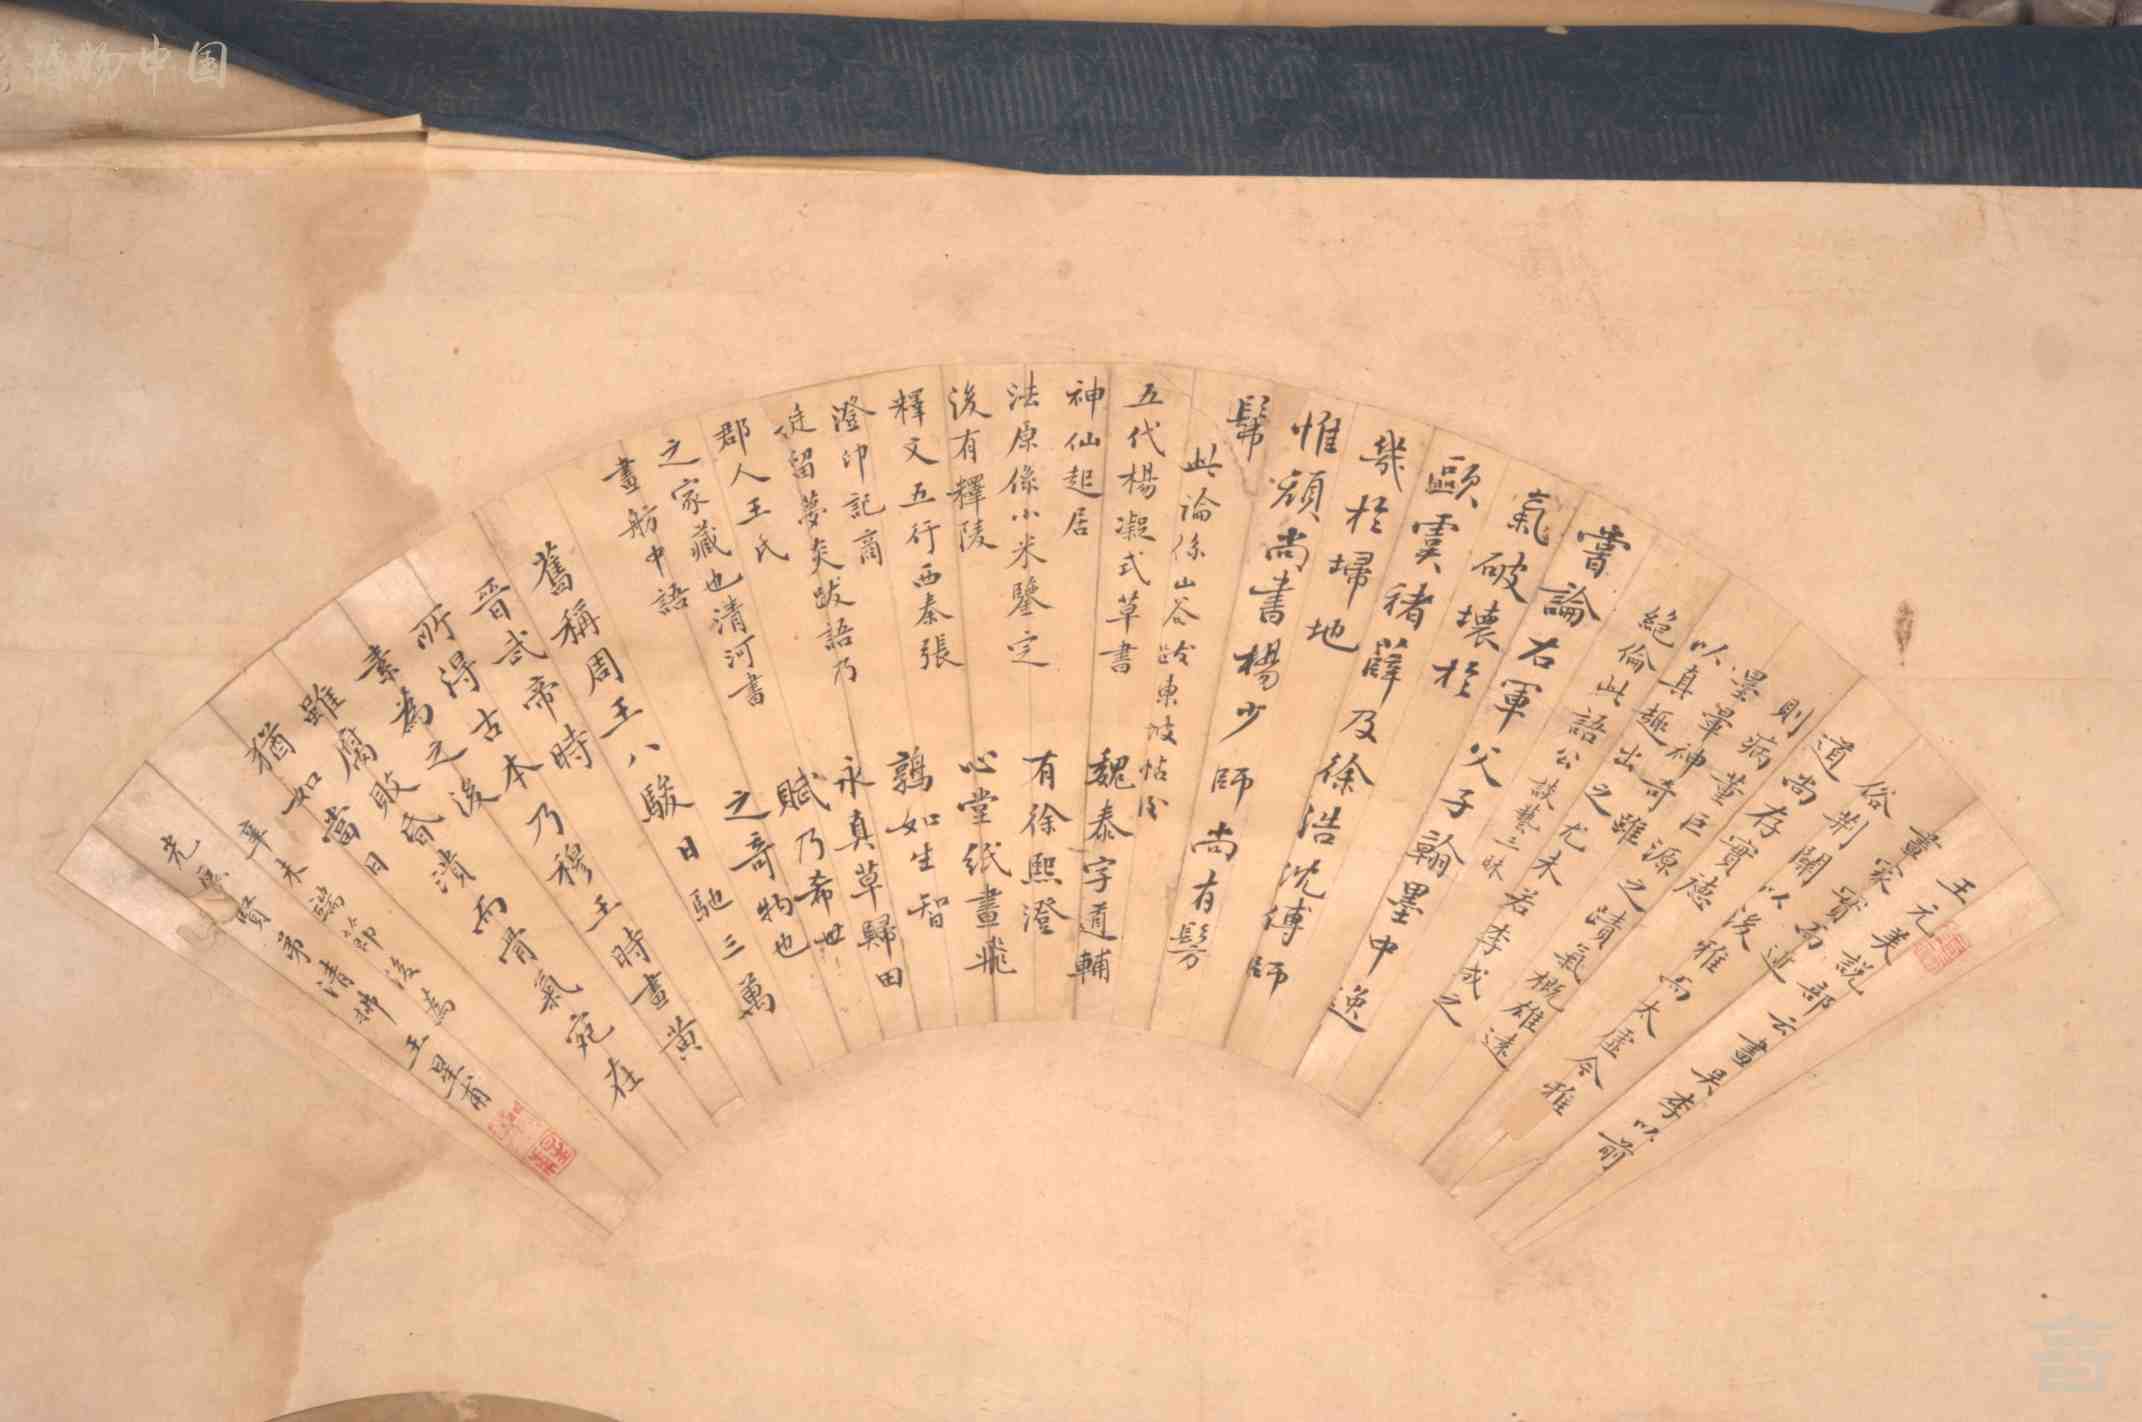 博物中国
王元美說部云畫吳李以前
畫家實而近
俗荊關以後雅而太虛今雅
道尚存實德
則病董巨源之蹟氣概雄遠
墨暈神奇雖
以真趣出之尤未若李成之
絕倫此語公談藝三昧
嘗論右軍父子翰墨中逸
氣破壞於
歐虞褚薛及徐浩沈傳師
幾於掃地
惟顏尚書楊少師尚有髣
髴
此論係山谷跋東坡帖後
五代楊凝式草書
神仙起居
法原係小米鑒定
後有釋陵
釋文五行西秦張
澄印記商
徒留夢炎跋語乃
郡人王氏
之家藏也清河書
畫舫中語
魏泰字道輔
有徐熙澄
心堂紙畫飛
鶉如生智
永真草歸田
賦乃希世
之奇物也
舊稱周王八駿日馳三萬
晉武帝時
所得古本乃穆王時畫黃
素為之後
雖腐敗昏潰而骨氣宛在
猶如當日
辛未端節後為
光賢弟清拂 王星甫